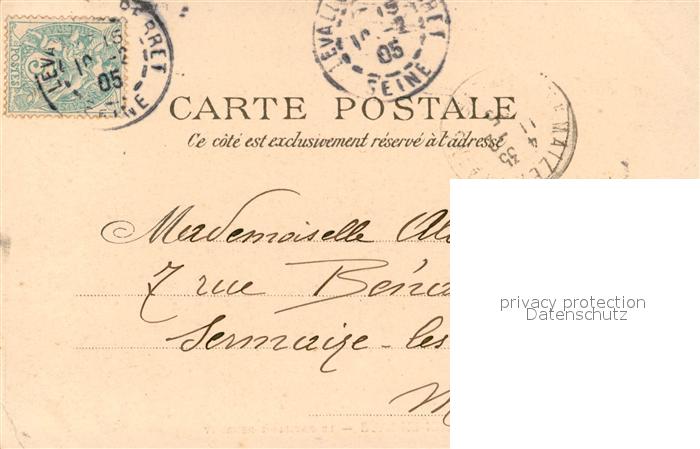 LEVALLO PERRET
15
05
SEINE
LEVA RRET
05
SEINE
POSTES
CARTE POSTALE
Ce côté est exclusivement réservé à l'adresse
Mademoiselle Al
7 rue Béna
Sermaize-les
M
privacy protection
Datenschutz